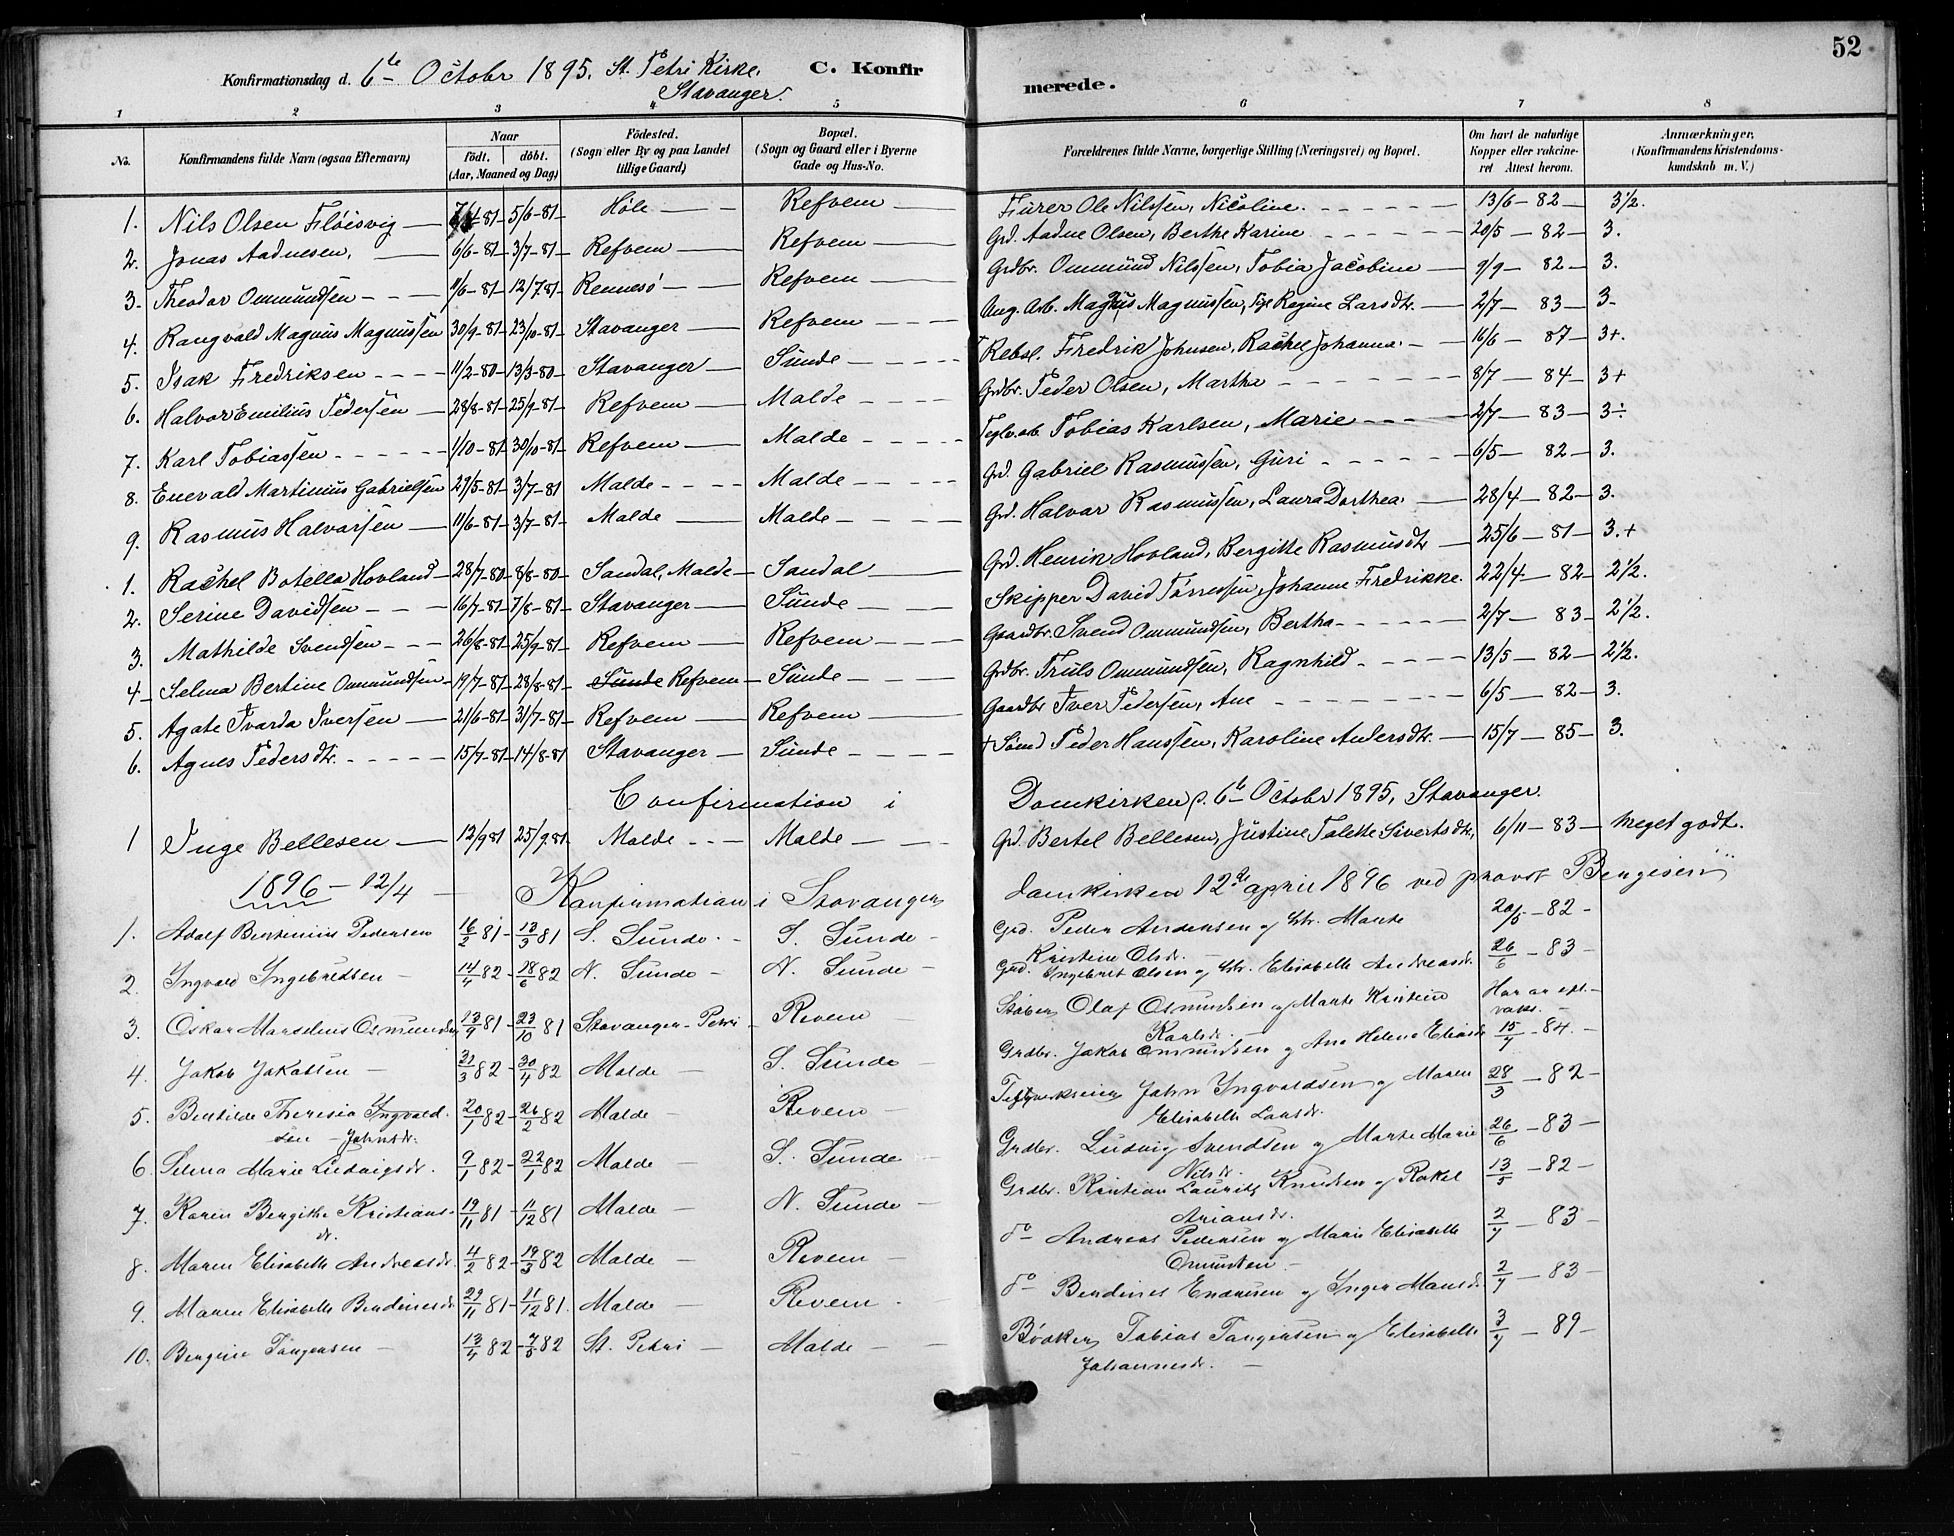 52
Konfirmationsdag d. 6te Octobr 1895. St. Petri Kirke. C. Konfirmerede.
Stavanger.
1 2 3 4 5 6 7 8
No. Konfirmandens fulde Navn (ogsaa Efternavn) Naar födt. döbt. (Aar, Maaned og Dag) Födested. (Sogn eller By og paa Landet tillige Gaard) Bopæl. (Sogn og Gaard eller i Byerne Gade og Hus-No. Forældrenes fulde Navne, borgerlige Stilling (Næringsvei) og Bopæl. Om havt de naturlige Kopper eller vakcineret Attest herom. Anmærkninger. (Konfirmandens Kristendomskundskab m. V.)
1. Nils Olsen Flöisvig 81 5/6-81 Höle Refvem Fürer Ole Nilssen, Nicoline. 13/6-82 3½.
2. Jonas Aadnesen, 6/6-81 3/7-81 Refvem Refvem Grd. Aadne Olsen, Berthe Karine 20/5-82 3.
3. Theodor Ommundsen 11/6-81 12/7.81 Rennesö Refvem Grdbr. Ommund Nilssen, Tobia Jacobine 9/9-82 3.
4. Rangvald Magnus Magnussen 30/9-81 23/10-81 Stavanger Refvem Aug. Arb. Magnus Magnussen, Regine Larsdtr. 2/7-83 3-
5. Isak Fredriksen 11/2-80 13/3-80 Stavanger Sunde Rebsl. Fredrik Johnsen, Rachel Johanna. 16/6-87 3+.
6. Halvor Emilius Pedersen 28/8-81 25/9-81 Refvem Malde Grdbr. Peder Olsen, Martha 8/7-84 3+
7. Karl Tobiassen 1/10-81 30/10-81 Refvem Malde Teglv.arb. Tobias Karlsen, Marie 2/7-83 3÷
8. Enevald Martinius Gabrielsen 29/5-81 3/7-81 Malde Malde Grd. Gabriel Rasmussen, Guri 6/5-82 3.
9. Rasmus Halvorsen 11/6-81 3/7-81 Malde Malde Grd. Halvor Rasmussen, Laura Dorthea 28/4-82 3.
1. Rachel Botella Hovland 28/7-80 8/8-80 Sandal, Malde Sandal Grd. Henrik Hovland, Bergitte Rasmusdtr 25/6-81 3.+
2. Serine Davidsen 16/7-81 7/8-81 Stavanger Sunde Skipper David Tönnessen, Johanne Fredrikke. 22/4-82 2½.
3. Mathilde Svendsen 26/8-81 25/9-81 Refvem Refvem Gaardbr. Svend Ommundsen, Bertha 2/7-83 2½.
4 Selma Bertine Ommundsen 19/7-81 28/8-81 Sunde Refvem Sunde Grdbr. Truls Ommundsen, Ragnhild 13/5-82 2½.
5. Agate Ivarda Iversen 21/6-81 31/7-81 Refvem Refvem Gaardbr Iver Pedersen, Ane 6/5-82 3.
6. Agnes Pedersdtr. 15/7-81 14/8-81 Stavanger Sunde + Sömd Peder Hanssen, Karoline Andersdtr. 15/7-85 3.
Confirmation i Domkirken d. 6te Octobr 1895, Stavanger.
1 Inge Bellesen 12/9 81 25/9.81 Malde Malde Grd. Bertel Bellesen, Justine Talette Sivertsdtr, 6/11-83 Meget godt.
1896 - 12/4 Konfirmation i Stavanger domkirken 12te april 1896 ved provst Bengisen
1. Adolf Bertinius Pedersen 16/2 81 13/3 81 S. Sunde S. Sunde Grd. Peder Andersen og Hstr. Marte 20/5-82
Kristine Olsdr.
2. Ingvald Ingebretsen 14/4 82 18/6 82 N. Sunde N. Sunde Grd. Ingebret Olsen og Hstr. Elisabeth Andreasdr. 26/6-83
3. Oskar Marselius Osmundsen 81 23/10 81 Stavanger Petri Revem Olaf Osmundsen og Marte Kristine Har
Karlsdr.
4. Jakob Jakobsen 31/3 82 30/4 82 Malde S. Sunde Grdbr. Jakob Ommundsen og Ane Helene Eliasdr 15/7-84
5. Bertilde Theresia Ingvaldsen Johnsdr. 20/1 82 26/2 82 Malde Revem Teglverkseier John Ingvaldsen og Maren 28/5-82
Elisabeth Larsdr.
6. Selma Marie Ludvigsdr. 9/1 82 22/1 82 Malde S. Sunde Grdbr. Ludvig Svendsen og Marte Marie 26/6-83
Nilsdr.
7. Karen Bergithe Kristiansdr. 19/11 81 11/12 81 Malde N. Sunde Grdbr. Kristian Laurits Knudsen og Rakel 13/5-82
Ariansdr.
8. Maren Elisabeth Andreasdr. 4/2 82 19/3 82 Malde Revem do Andreas Pedersen og Marie Elisabeth 2/7-83
Osmundsen
9. Maren Elisabeth Berdinesdr. 29/11 81 11/12 81. Malde Revem do Berdines Endresen og Inger Marie 2/7-83
10. Bergine Tangensen 13/4 82 7/5 82 St. Petri Malde Tobias Tangensen og Elisabeth 3/7-89
Johannesdr.